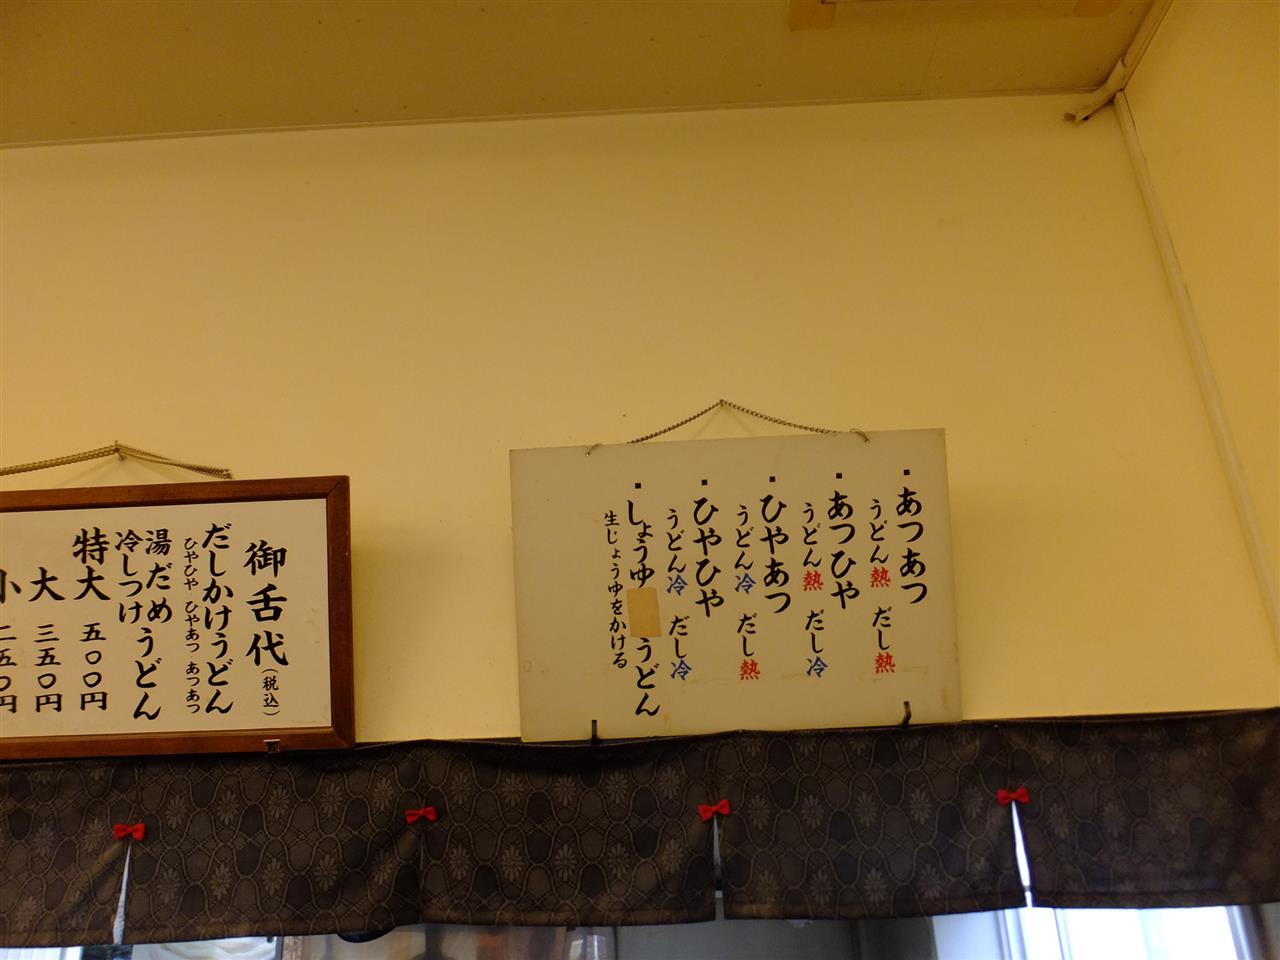 ・あつあつ
うどん熱 だし熱
・あつひや
うどん熱 だし冷
・ひやあつ
うどん冷 だし熱
・ひやひや
うどん冷 だし冷
・しょうゆ うどん
生じょうゆをかける
御舌代(税込)
だしかけうどん
ひやひや ひやあつ あつあつ
湯だめうどん
冷しつけ
特大 五〇〇円
大 三五〇円
小 二五〇円